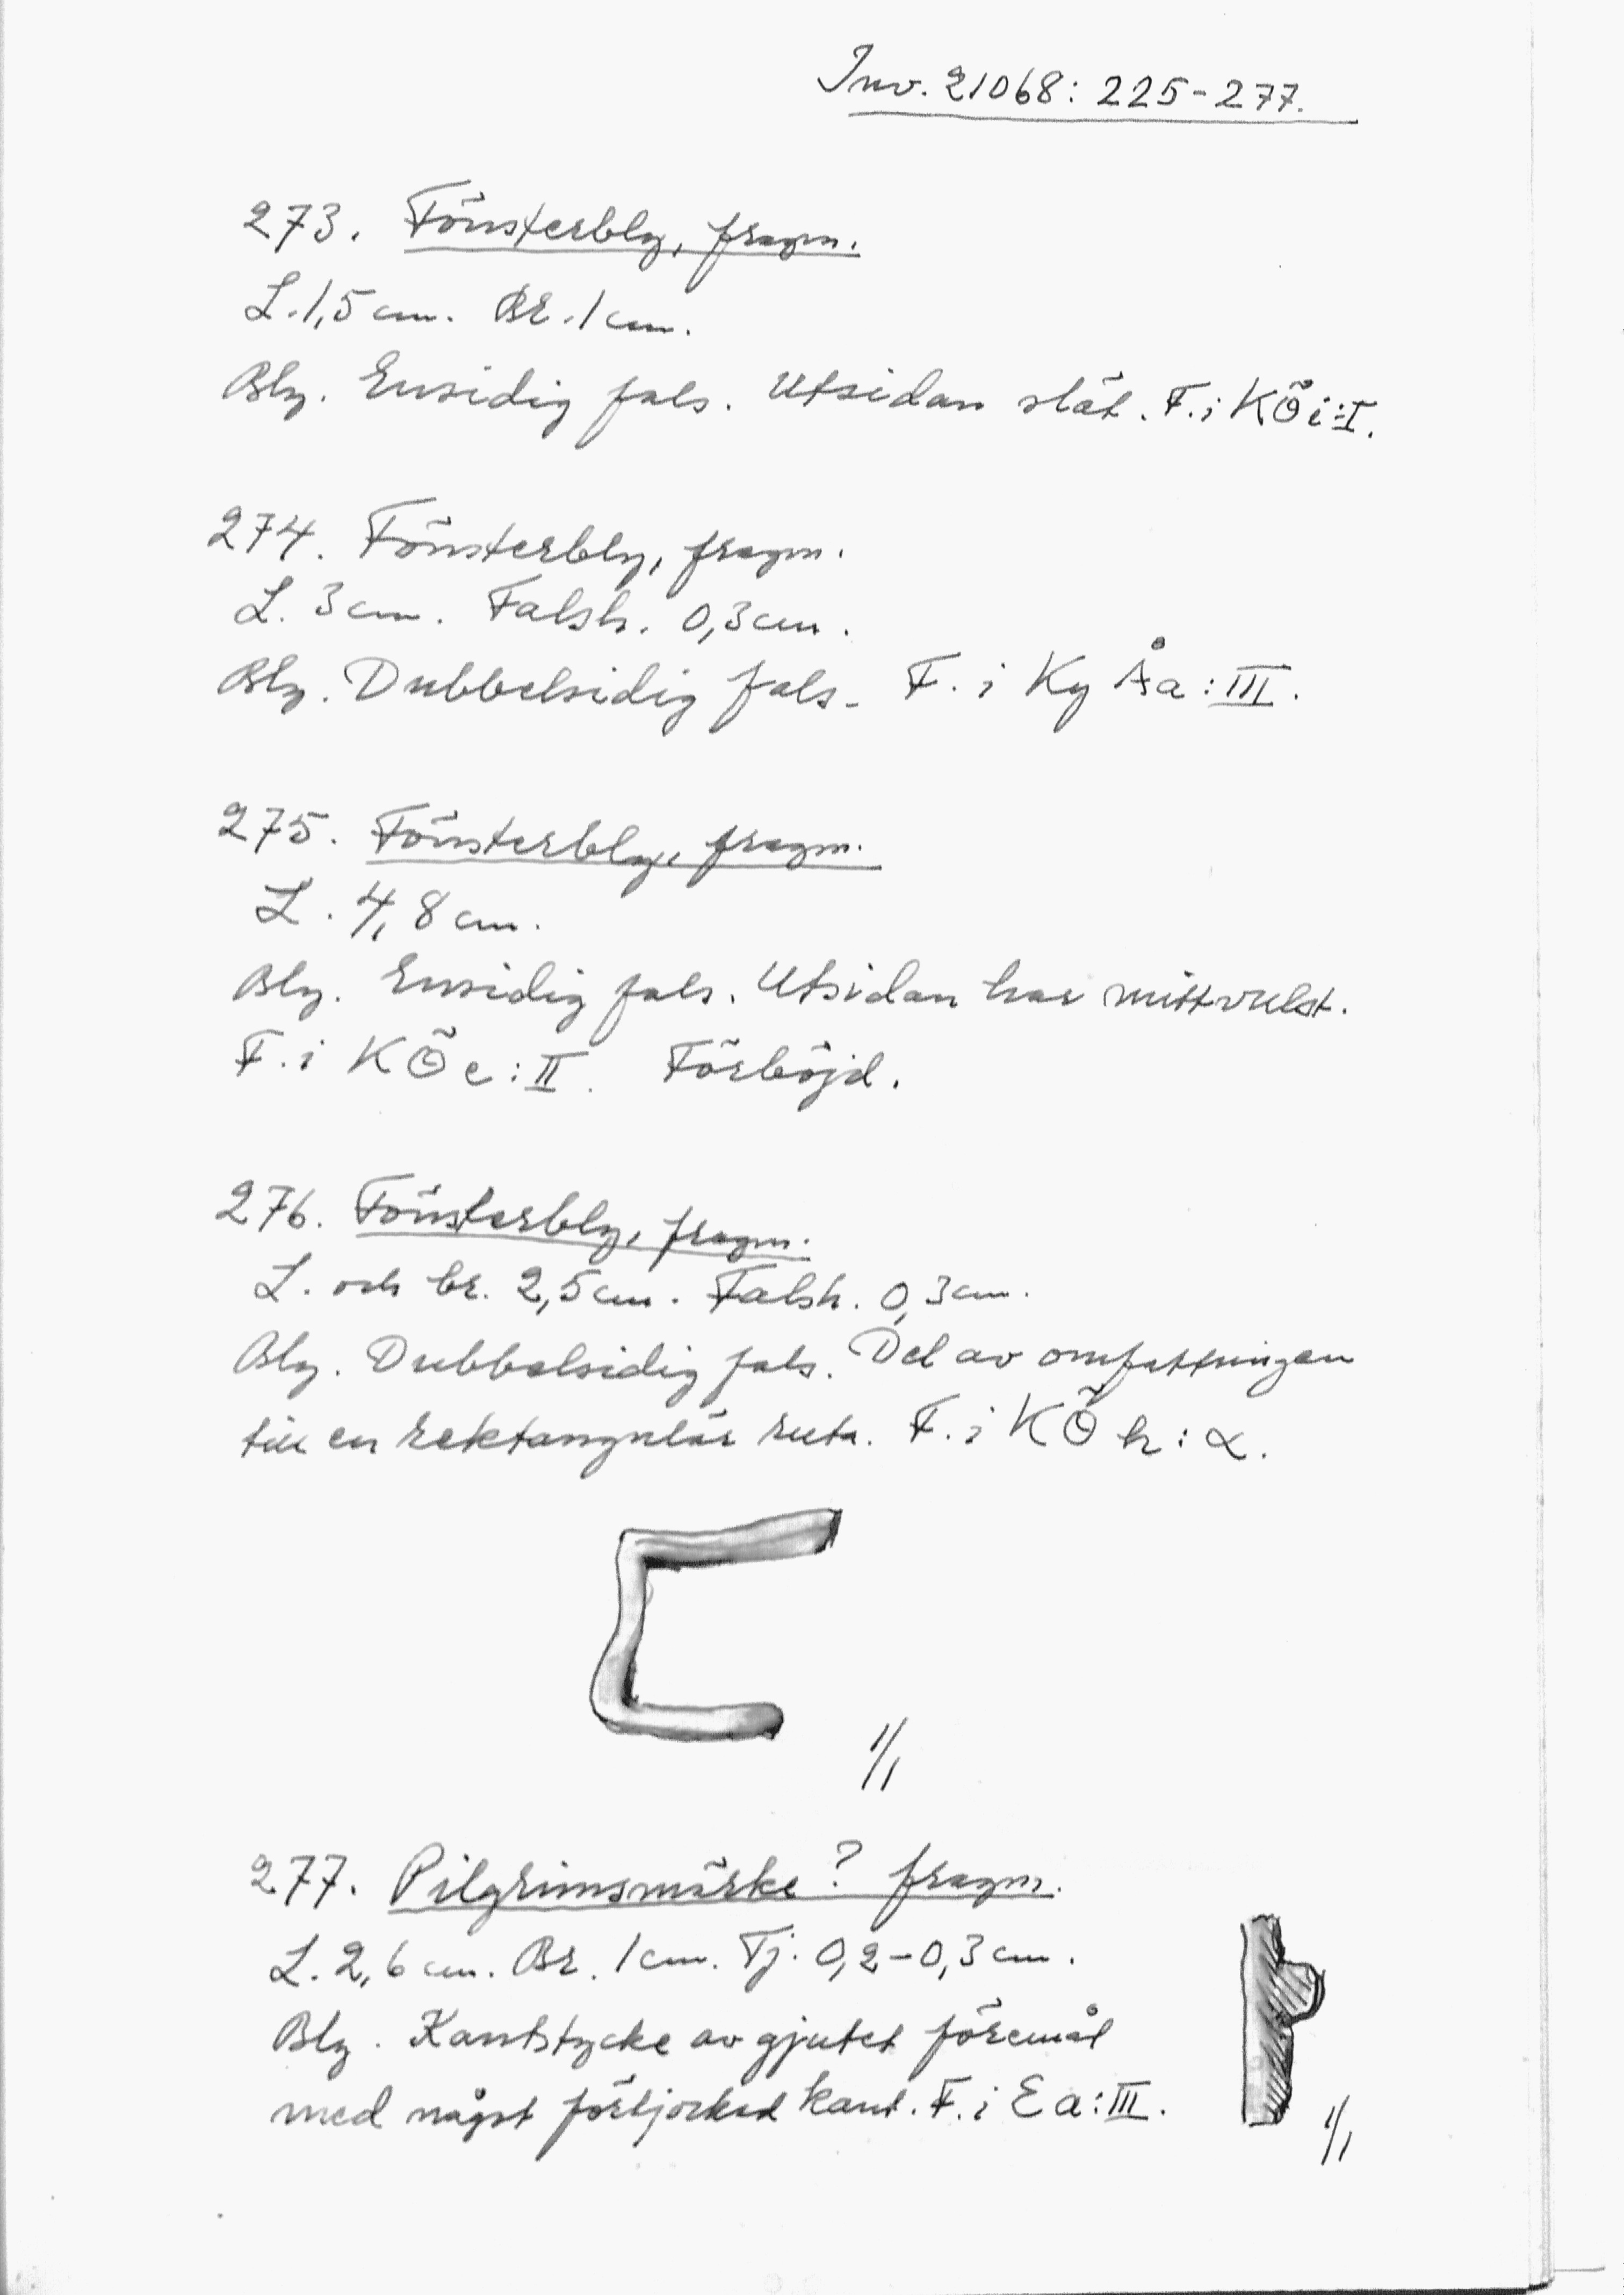 Inv. 21068: 225-277.
273. Fönsterbly, fragm.
L. 1,5 cm. Br. 1 cm.
Bly. Ensidig fals. Utsidan slät. F. i KÖ i:I.
274. Fönsterbly, fragm.
L. 3 cm. Falsh. 0,3 cm.
Bly. Dubbelsidig fals. F. i Ky Åa:III.
275. Fönsterbly, fragm.
L. 4,8 cm.
Bly. Ensidig fals. Utsidan har mittvulst.
F. i KÖ e:II. Förböjd.
276. Fönsterbly, fragm.
L. och br. 2,5 cm. Falsh. 0,3 cm.
Bly. Dubbelsidig fals. Del av omfattningen
till en rektangulär ruta. F. i KÖ h:α.
1/1
277. Pilgrimsmärke? fragm.
L. 2,6 cm. Br. 1 cm. Tj. 0,2-0,3 cm.
Bly. Kantstycke av gjutet föremål
med något förtjockad kant. F. i Ea:III.
1/1